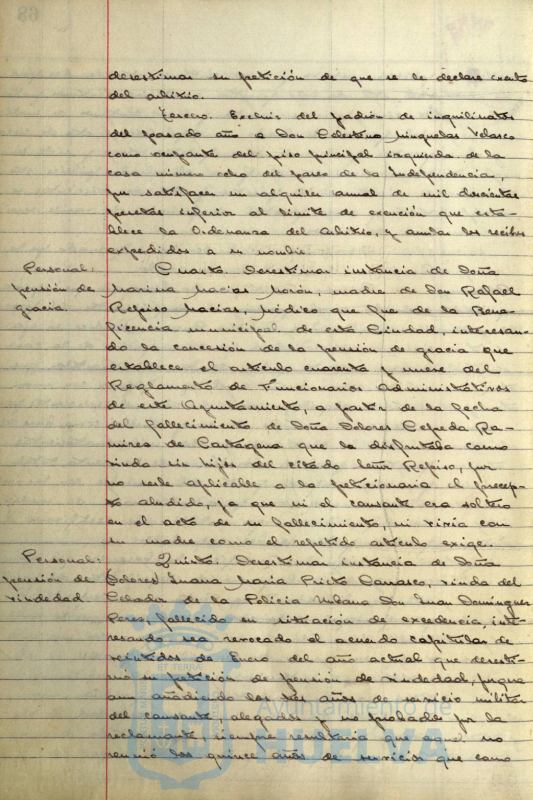 desestimar su petición de que se le declare exento
del arbitrio.
Tercero. Excluir del padrón de inquilinatos
del pasado año a Don Celestino Minguelas Velasco
como ocupante del piso principal izquierda de la
casa número ocho del paseo de la Independencia,
por satisfacer un alquiler anual de mil doscientas
pesetas inferior al límite de exención que esta-
blece la Ordenanza del Arbitrio, y anular los recibos
expedidos a su nombre.
Personal:
pensión de
gracia.
Cuarto. Desestimar instancia de Doña
Marina Macías Morón, madre de Don Rafael
Repiso Macías, Médico que fue de la Bene-
ficencia municipal de esta Ciudad, interesan-
do la concesión de la pensión de gracia que
establece el artículo cuarenta y nueve del
Reglamento de Funcionarios Administrativos
de este Ayuntamiento, a partir de la fecha
del fallecimiento de Doña Dolores Cepeda Ra-
mires de Cartagena que la disfrutaba como
viuda sin hijos del citado Señor Repiso, por
no serle aplicable a la peticionaria el precep-
to aludido, ya que ni el causante era soltero
en el acto de su fallecimiento, ni vivía con
su madre como el repetido artículo exige.
Personal:
pensión de
viudedad
Quinto. Desestimar instancia de Doña
Dolores Juana María Prieto Carrasco, viuda del
Celador de la Policía Urbana Don Juan Domínguez
Peres, fallecido en situación de excedencia, inte-
resando sea revocado el acuerdo capitular de
veintidos de Enero del año actual que desesti-
mó su petición de pensión de viudedad, porque
aun añadiendo los tres años de servicio militar
del causante alegados y no probados por la
reclamante siempre resultaría que aquel no
reunió los quince años de servicios que como
Ayuntamiento de
HUELVA